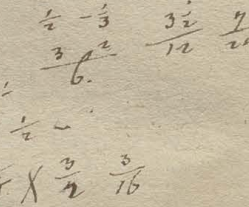 1/2 - 1/3 3 1/2/12 7/2
3 2/6.
1/2 -
X 3/4 3/16